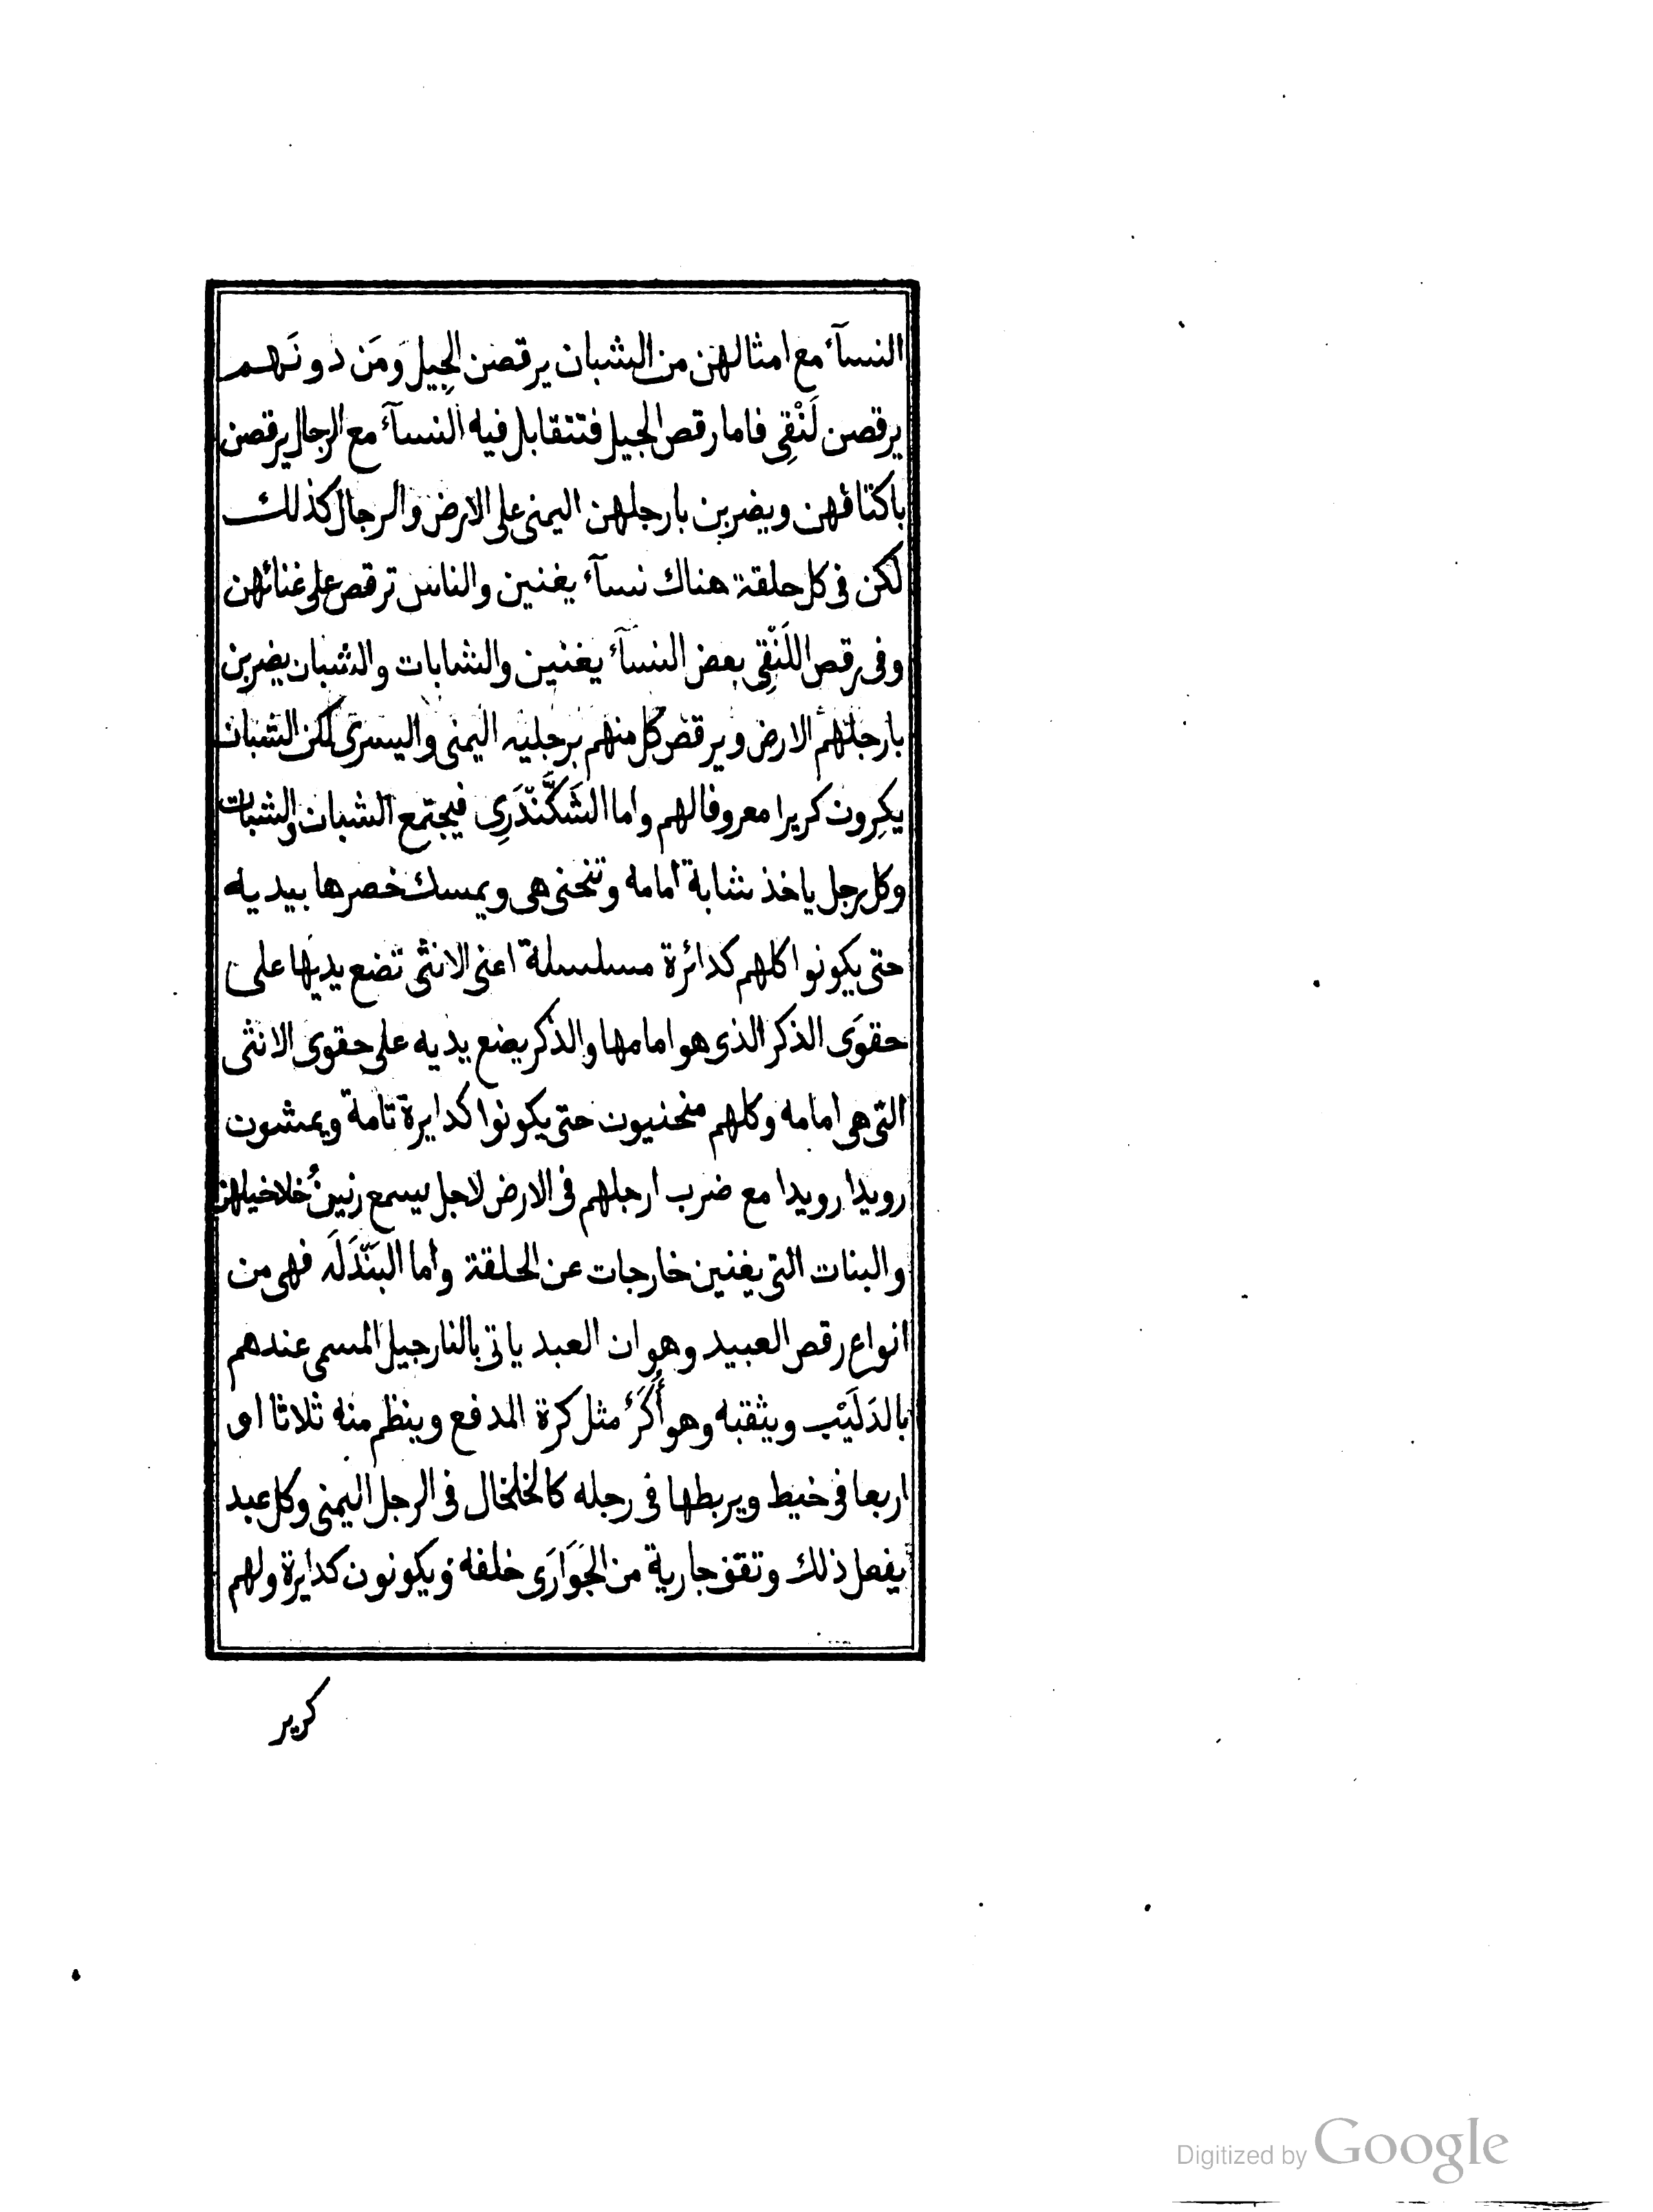 النسآء مع امثالهن من الشبان يرقصن الجِيل وَمَن دونَهم
يرقصن لَنْقِى فاما رقص الجيل فتتقابل فيه النسآء مع الرجال يرقصن
باكتافهن ويضربن بارجلهن اليمنى على الارض والرجال كذلك
لكن فى كل حلقة هناك نسآء يغنين والناس ترقص على غنائهن
وفى رقص اللَنْقِى بعض النسآء يغنين والشابات والشبان يضربن
بارجلهم الارض ويرقص كل منهم برجليه اليمنى واليسرى لكن الشبان
يكِرون كريرا معروفا لهم واما الشَكَّنْدَرِى فيجتمع الشبان والشبات
وكل رجل ياخذ شابة امامه وتنحنى هى ويمسك خصرها بيديه
حتى يكونوا كلهم كدائرة مسلسلة اعنى الانثى تضع يديها على
حقوَى الذكر الذى هو امامها والذكر يضع يديه على حقوى الانثى
التى هى امامه وكلهم منحنيون حتى يكونوا كدايرة تامة ويمشون
رويدا رويدا مع ضرب ارجلهم فى الارض لاجل يسمع رنينُ خلاخيلهن
والبنات التى يغنين خارجات عن الحلقة واما البَنْدَلَه فهى من
انواع رقص العبيد وهو ان العبد ياتى بالنارجيل المسمى عندهم
بالدَلَيْب ويثقبه وهو أُكَرٌ مثل كرة المدفع وينظم منه ثلاثا او
اربعا فى خيط ويربطها فى رجله كالخلخال فى الرجل اليمنى وكل عبد
يفعل ذلك وتقف جارية من الجَوَارَى خلفه ويكونون كدايرة ولهم
كرير
Digitized by Google